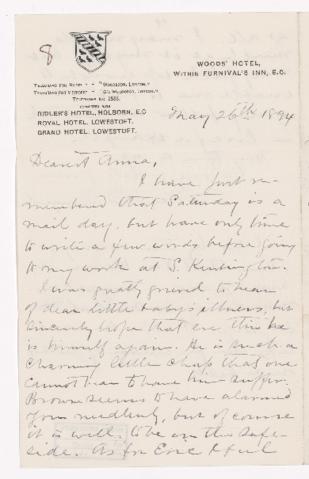 8
WOODS' HOTEL,
WITHIN FURNIVAL'S INN, E.C.
TELEGRAMS FOR
CONNECTED WITH
RIDLER'S HOTEL, HOLBORN, E.C
ROYAL HOTEL, LOWESTOFT.
GRAND HOTEL, LOWESTOFT.
May 26th 1894
Dearest Anna,
I have just re-
membered that Saturday is a
mail day, but have only time
to write a few words before going
to my work at S. Kensington.
I was greatly grieved to hear
of dear little baby's illness, but
sincerely hope that ere this he
is himself again. He is such a
charming little chap that one
cannot bear to have him suffer.
Browne seems to have alarmed
you needlessly, but of course
it is well to be on the safe-
side. As for Eric I feel